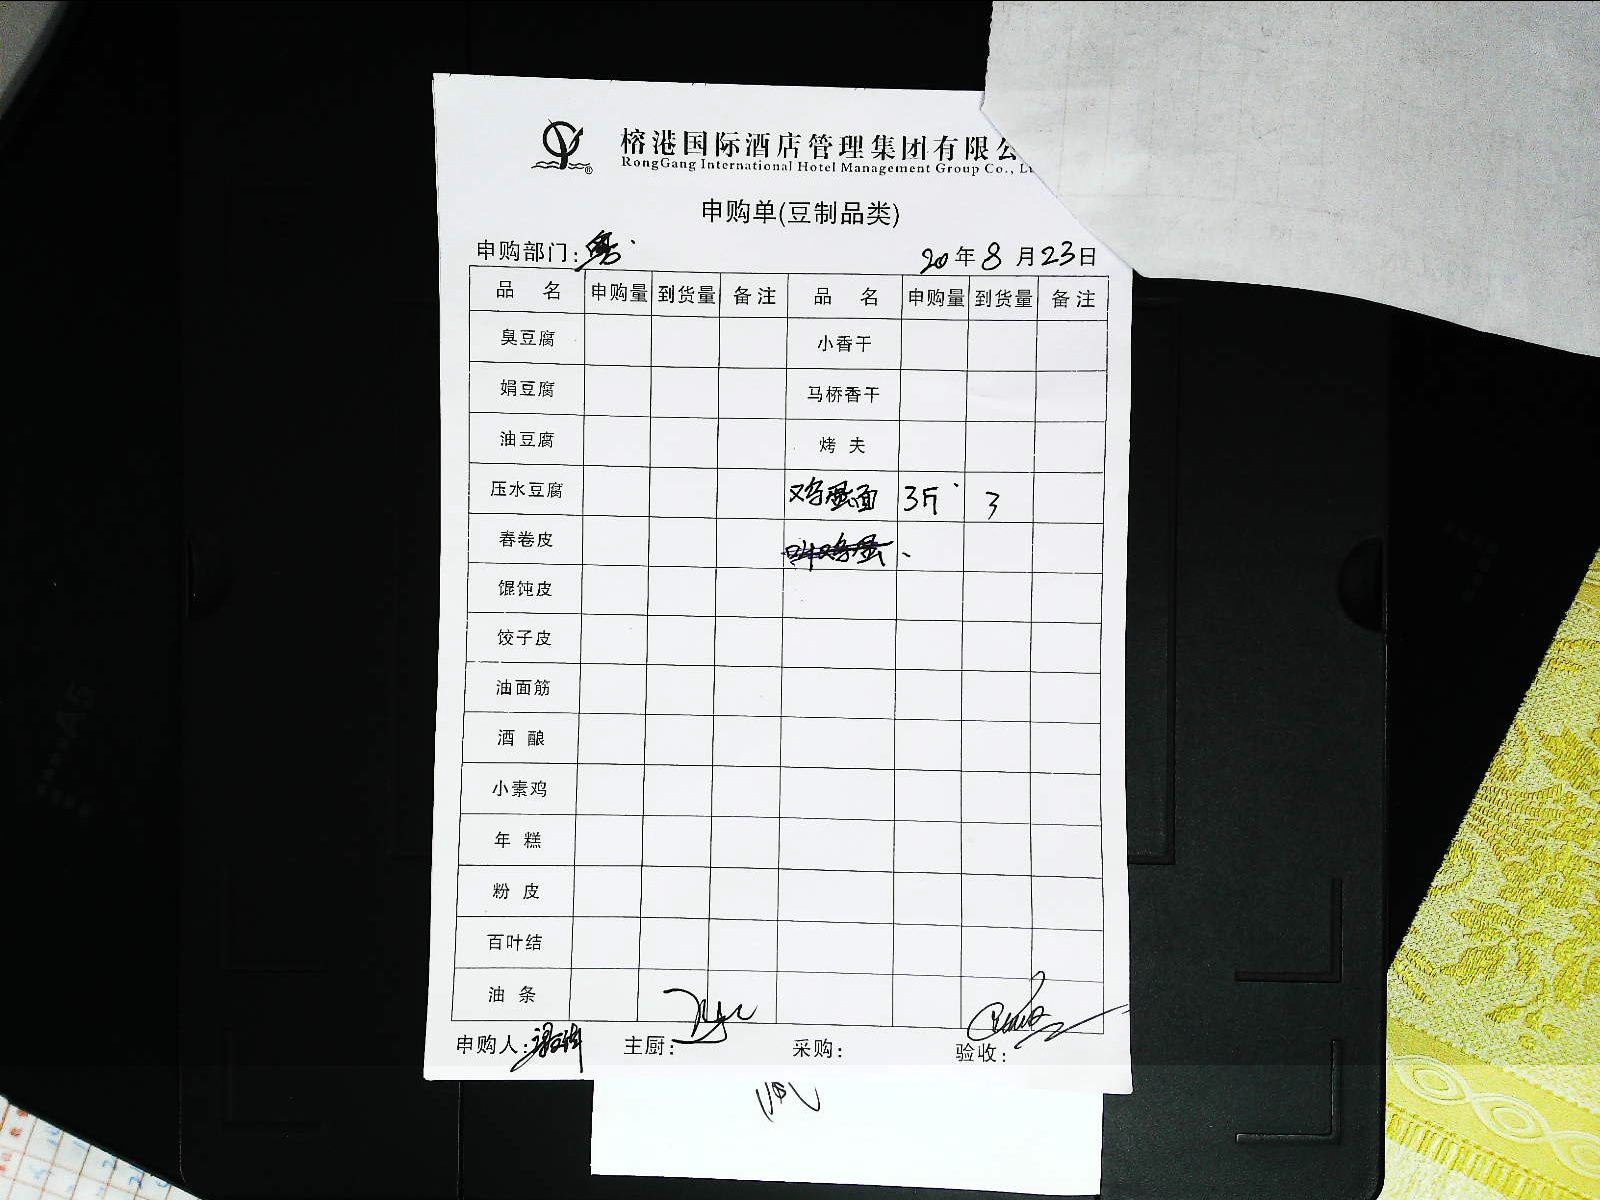 榕港国际酒店管理集团有限公
RongGang International Hotel Management Group Co., Lt
®
申购单(豆制品类)
申购部门: 20年8月23日
品 名 申购量 到货量 备注 品 名 申购量 到货量 备注
臭豆腐 小香干
娟豆腐 马桥香干
油豆腐 烤 夫
压水豆腐 鸡蛋面 3斤 3
春卷皮
馄饨皮
饺子皮
油面筋
酒 酿
小素鸡
年 糕
粉 皮
百叶结
油 条
申购人: 主厨: 采购: 验收: